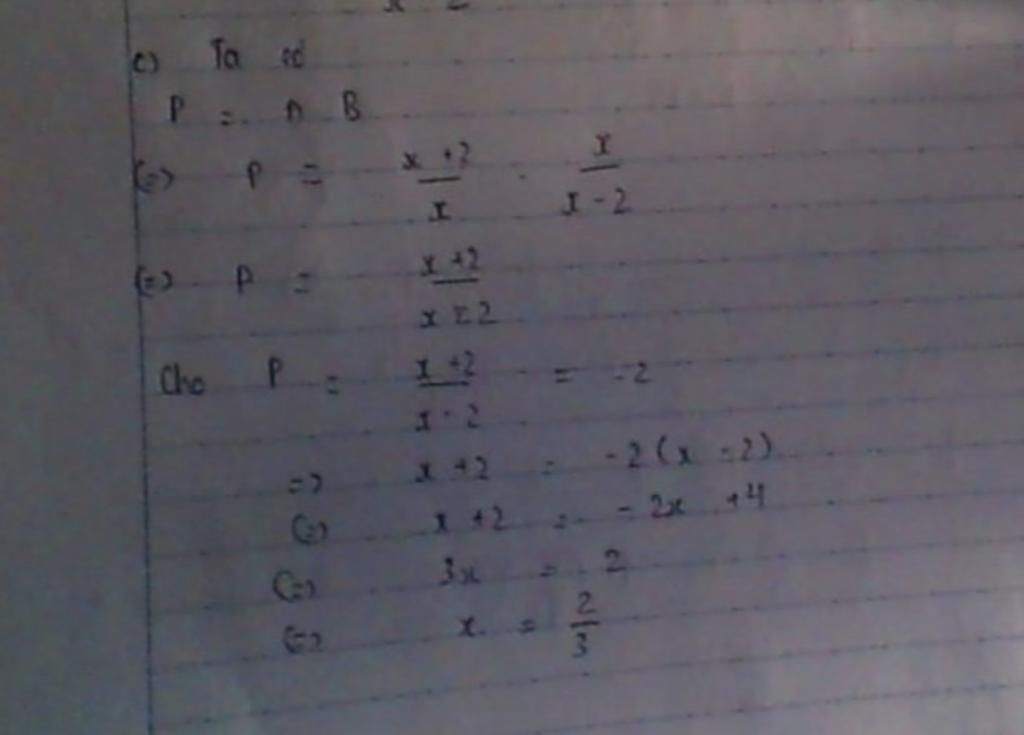 c) Ta có
P = A . B
(=) P = \frac{x+2}{x} . \frac{x}{x-2}
(=) P = \frac{x+2}{x-2}
Cho P = \frac{x+2}{x-2} = -2
=) x+2 = -2(x-2)
(=) x+2 = -2x +4
(=) 3x = 2
(=) x = \frac{2}{3}